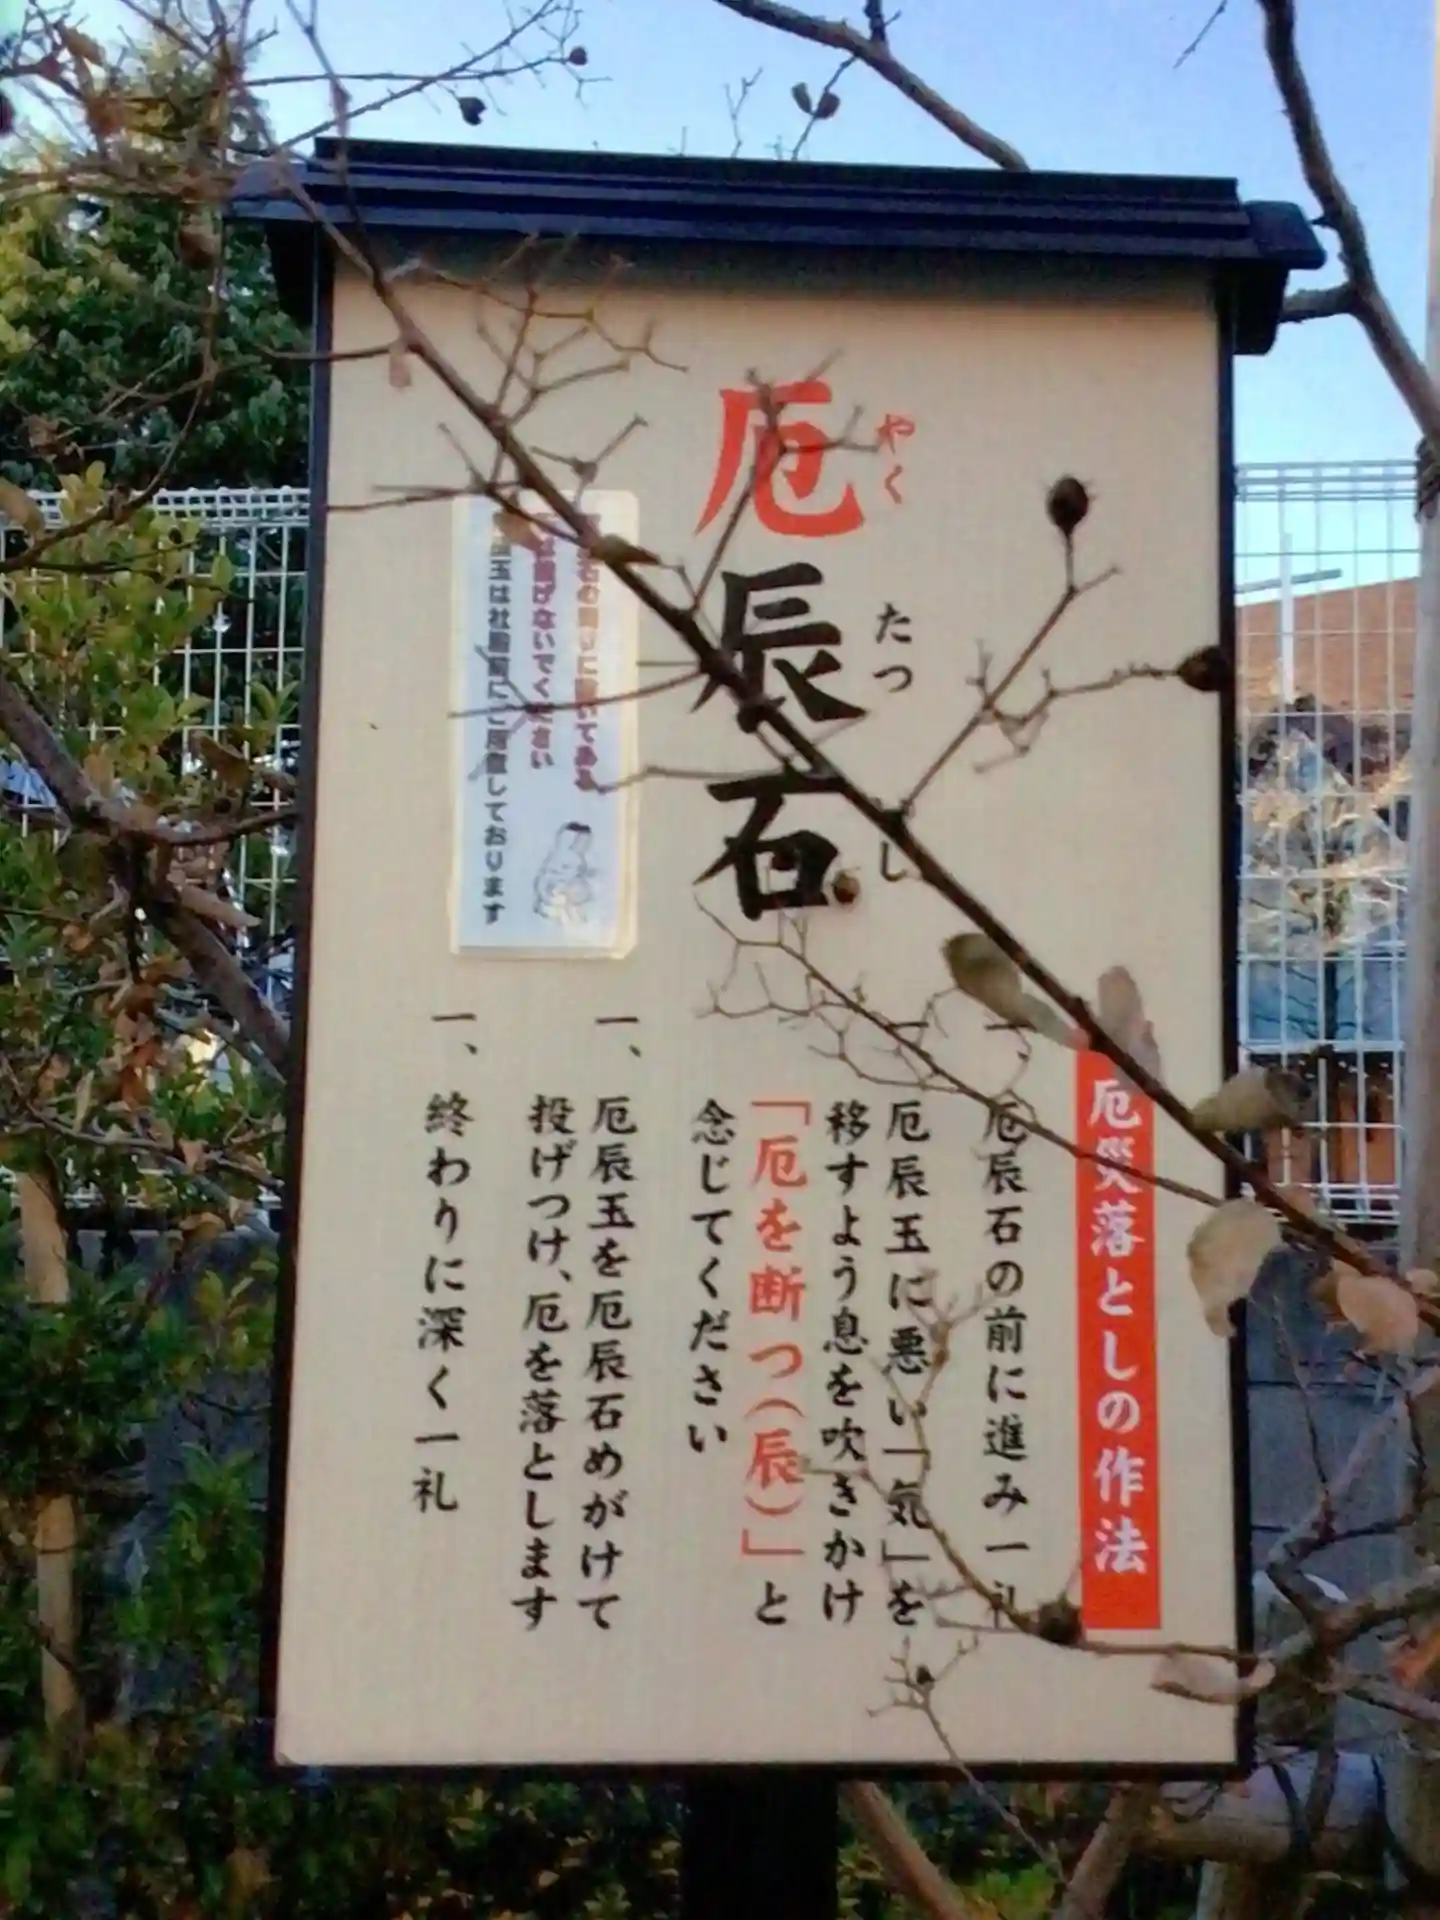 厄辰石
やく たつ し
厄災落としの作法
一、厄辰石の前に進み一礼
一、厄辰玉に悪い「気」を
移すよう息を吹きかけ
「厄を断つ(辰)」と
念じてください
一、厄辰玉を厄辰石めがけて
投げつけ、厄を落とします
一、終わりに深く一礼
石の周りに置いてある
は投げないでください
玉は社殿前にご用意しております